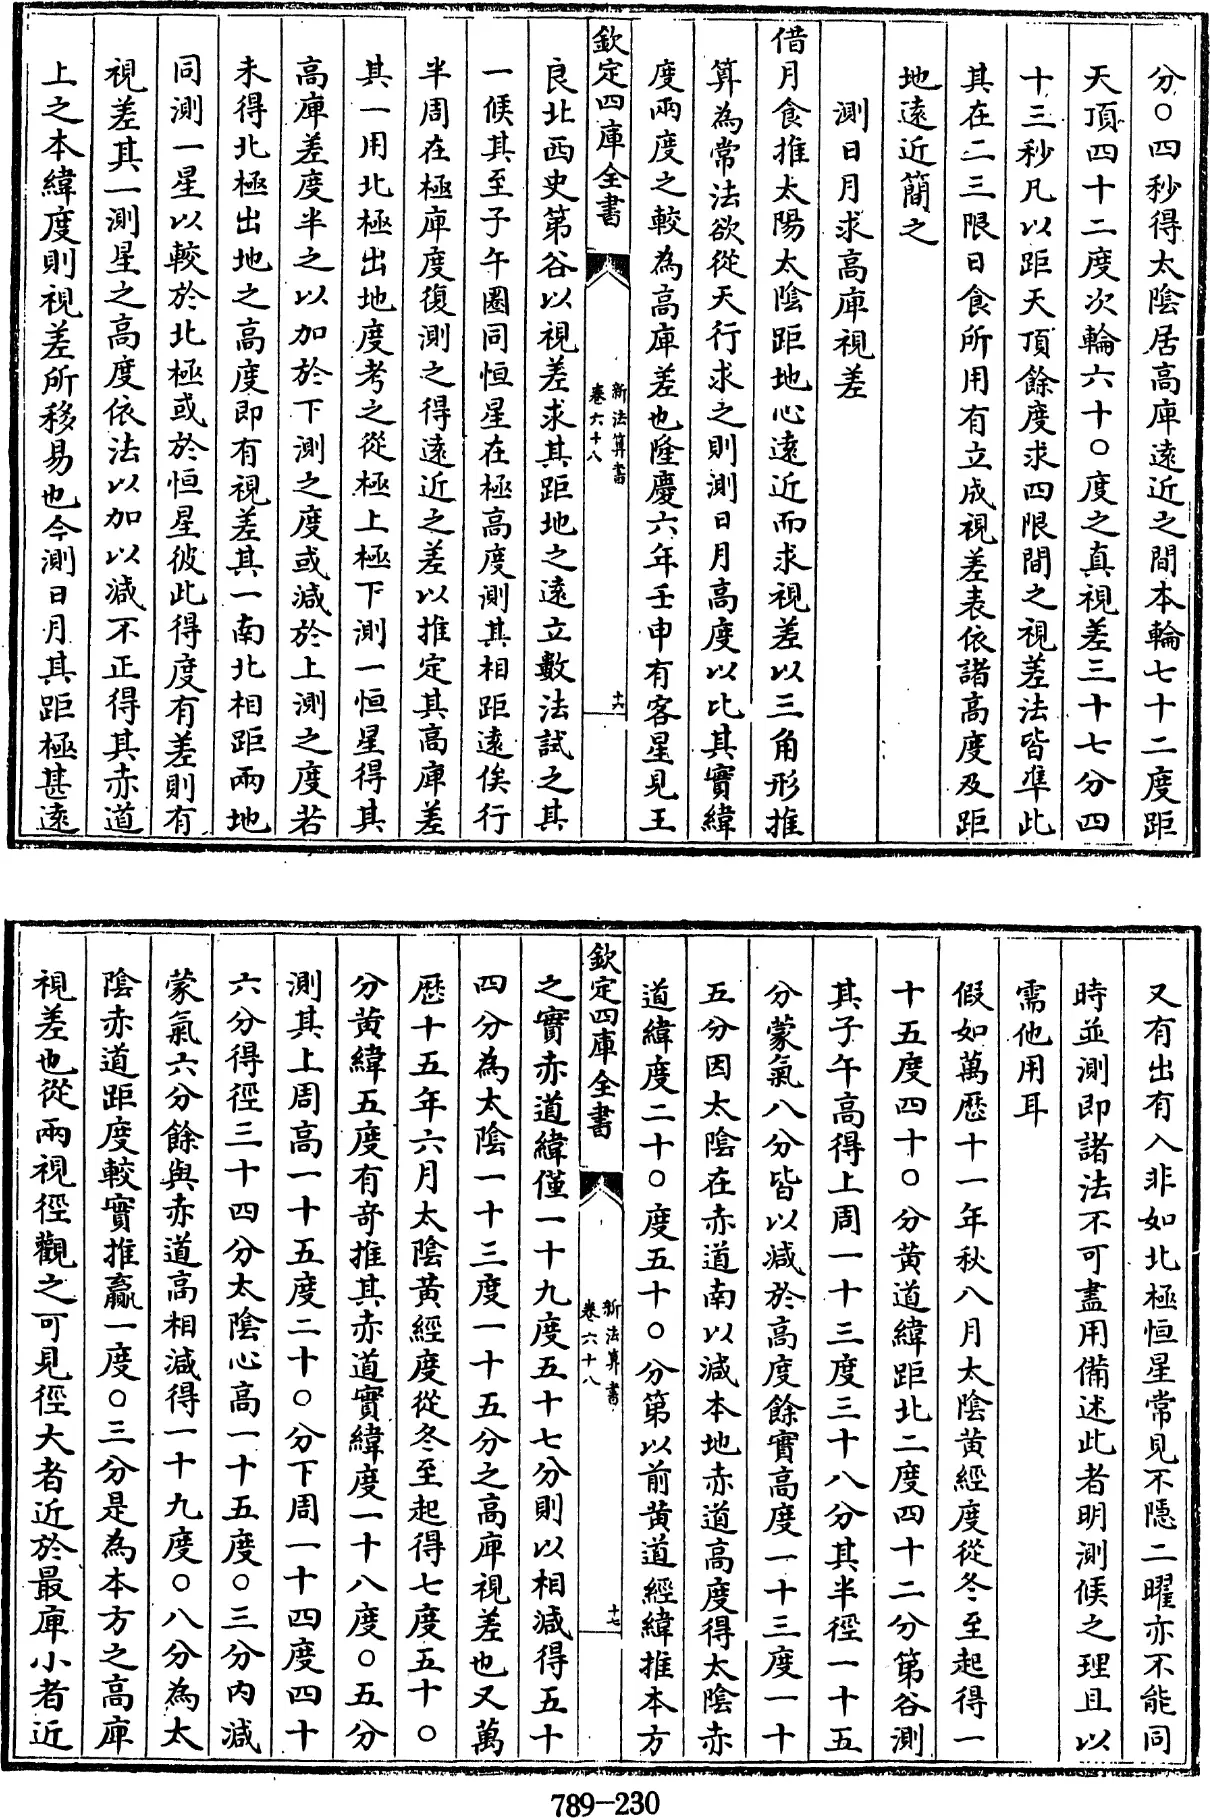 分〇四秒得太陰居高庳遠近之間本輪七十二度距
天頂四十二度次輪六十〇度之真視差三十七分四
十三秒凡以距天頂餘度求四限間之視差法皆準此
其在二三限日食所用有立成視差表依諸高度及距
地遠近簡之
測日月求高庳視差
借月食推太陽太陰距地心遠近而求視差以三角形推
算為常法欲從天行求之則測日月高度以比其實緯
度兩度之較為高庳差也隆慶六年壬申有客星見王
欽定四庫全書
新法算書
卷六十八
十六
良北西史第谷以視差求其距地之遠立數法試之其
一候其至子午圈同恒星在極高度測其相距遠俟行
半周在極庳度復測之得遠近之差以推定其高庳差
其一用北極出地度考之從極上極下測一恒星得其
高庳差度半之以加於下測之度或減於上測之度若
未得北極出地之高度即有視差其一南北相距兩地
同測一星以較於北極或於恒星彼此得度有差則有
視差其一測星之高度依法以加以減不正得其赤道
上之本緯度則視差所移易也今測日月其距極甚遠
又有出有入非如北極恒星常見不隱二曜亦不能同
時並測即諸法不可盡用備述此者明測候之理且以
需他用耳
假如萬歷十一年秋八月太陰黃經度從冬至起得一
十五度四十〇分黃道緯距北二度四十二分第谷測
其子午高得上周一十三度三十八分其半徑一十五
分蒙氣八分皆以減於高度餘實高度一十三度一十
五分因太陰在赤道南以減本地赤道高度得太陰赤
道緯度二十〇度五十〇分第以前黃道經緯推本方
欽定四庫全書
新法算書
卷六十八
十七
之實赤道緯僅一十九度五十七分則以相減得五十
四分為太陰一十三度一十五分之高庳視差也又萬
歷十五年六月太陰黃經度從冬至起得七度五十〇
分黃緯五度有奇推其赤道實緯度一十八度〇五分
測其上周高一十五度二十〇分下周一十四度四十
六分得徑三十四分太陰心高一十五度〇三分內減
蒙氣六分餘與赤道高相減得一十九度〇八分為太
陰赤道距度較實推贏一度〇三分是為本方之高庳
視差也從兩視徑觀之可見徑大者近於最庳小者近
789-230